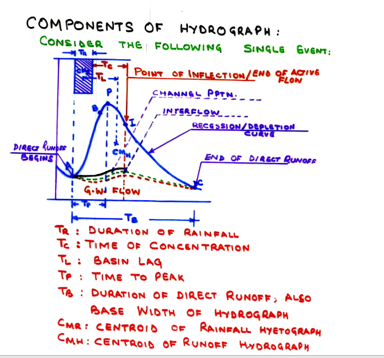 COMPONENTS OF HYDROGRAPH:
CONSIDER THE FOLLOWING SINGLE EVENT:
TR
CMR
TC
TL
POINT OF INFLECTION/END OF ACTIVE
FLOW
P
CHANNEL PPTN.
B
INTERFLOW
I
RECESSION/DEPLETION
CURVE
CMH
DIRECT RUNOFF
BEGINS
A
END OF DIRECT RUNOFF
C
G.W. FLOW
TP
TB
TR: DURATION OF RAINFALL
TC: TIME OF CONCENTRATION
TL: BASIN LAG
TP: TIME TO PEAK
TB: DURATION OF DIRECT RUNOFF, ALSO
BASE WIDTH OF HYDROGRAPH
CMR: CENTROID OF RAINFALL HYETOGRAPH
CMH: CENTROID OF RUNOFF HYDROGRAPH